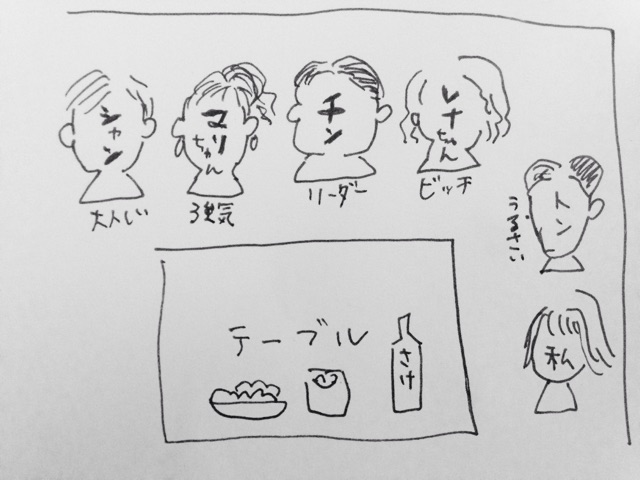 シャン
マリちゃん
チン
レナちゃん
大人じ
強気
リーダー
ビッチ
トン
うるさい
テーブル
さけ
私